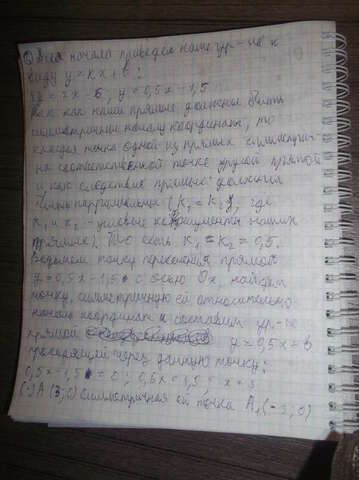 Для начала приведем наше ур-ие к
виду y = kx + b:
y = 0,5x - 1,5
Так как наши прямые должны быть
симметричны началу координат, то
каждая точка одной из прямых симметрич-
на соответственной точке другой прямой
и как следствие прямые должны
быть параллельны (k₁ = k₂, где
k₁ и k₂ - угловые коэффициенты наших
прямых). То есть k₁ = k₂ = 0,5.
Возьмем точку пересечения прямой
y = 0,5x - 1,5 с осью Ox, найдем
точку, симметричную ей относительно
начала координат и составим ур-ие
прямой y = 0,5x + b
проходящей через данную точку:
0,5x - 1,5 = 0; 0,5x = 1,5; x = 3
A (3; 0) симметричная ей точка A₁ (-3; 0)